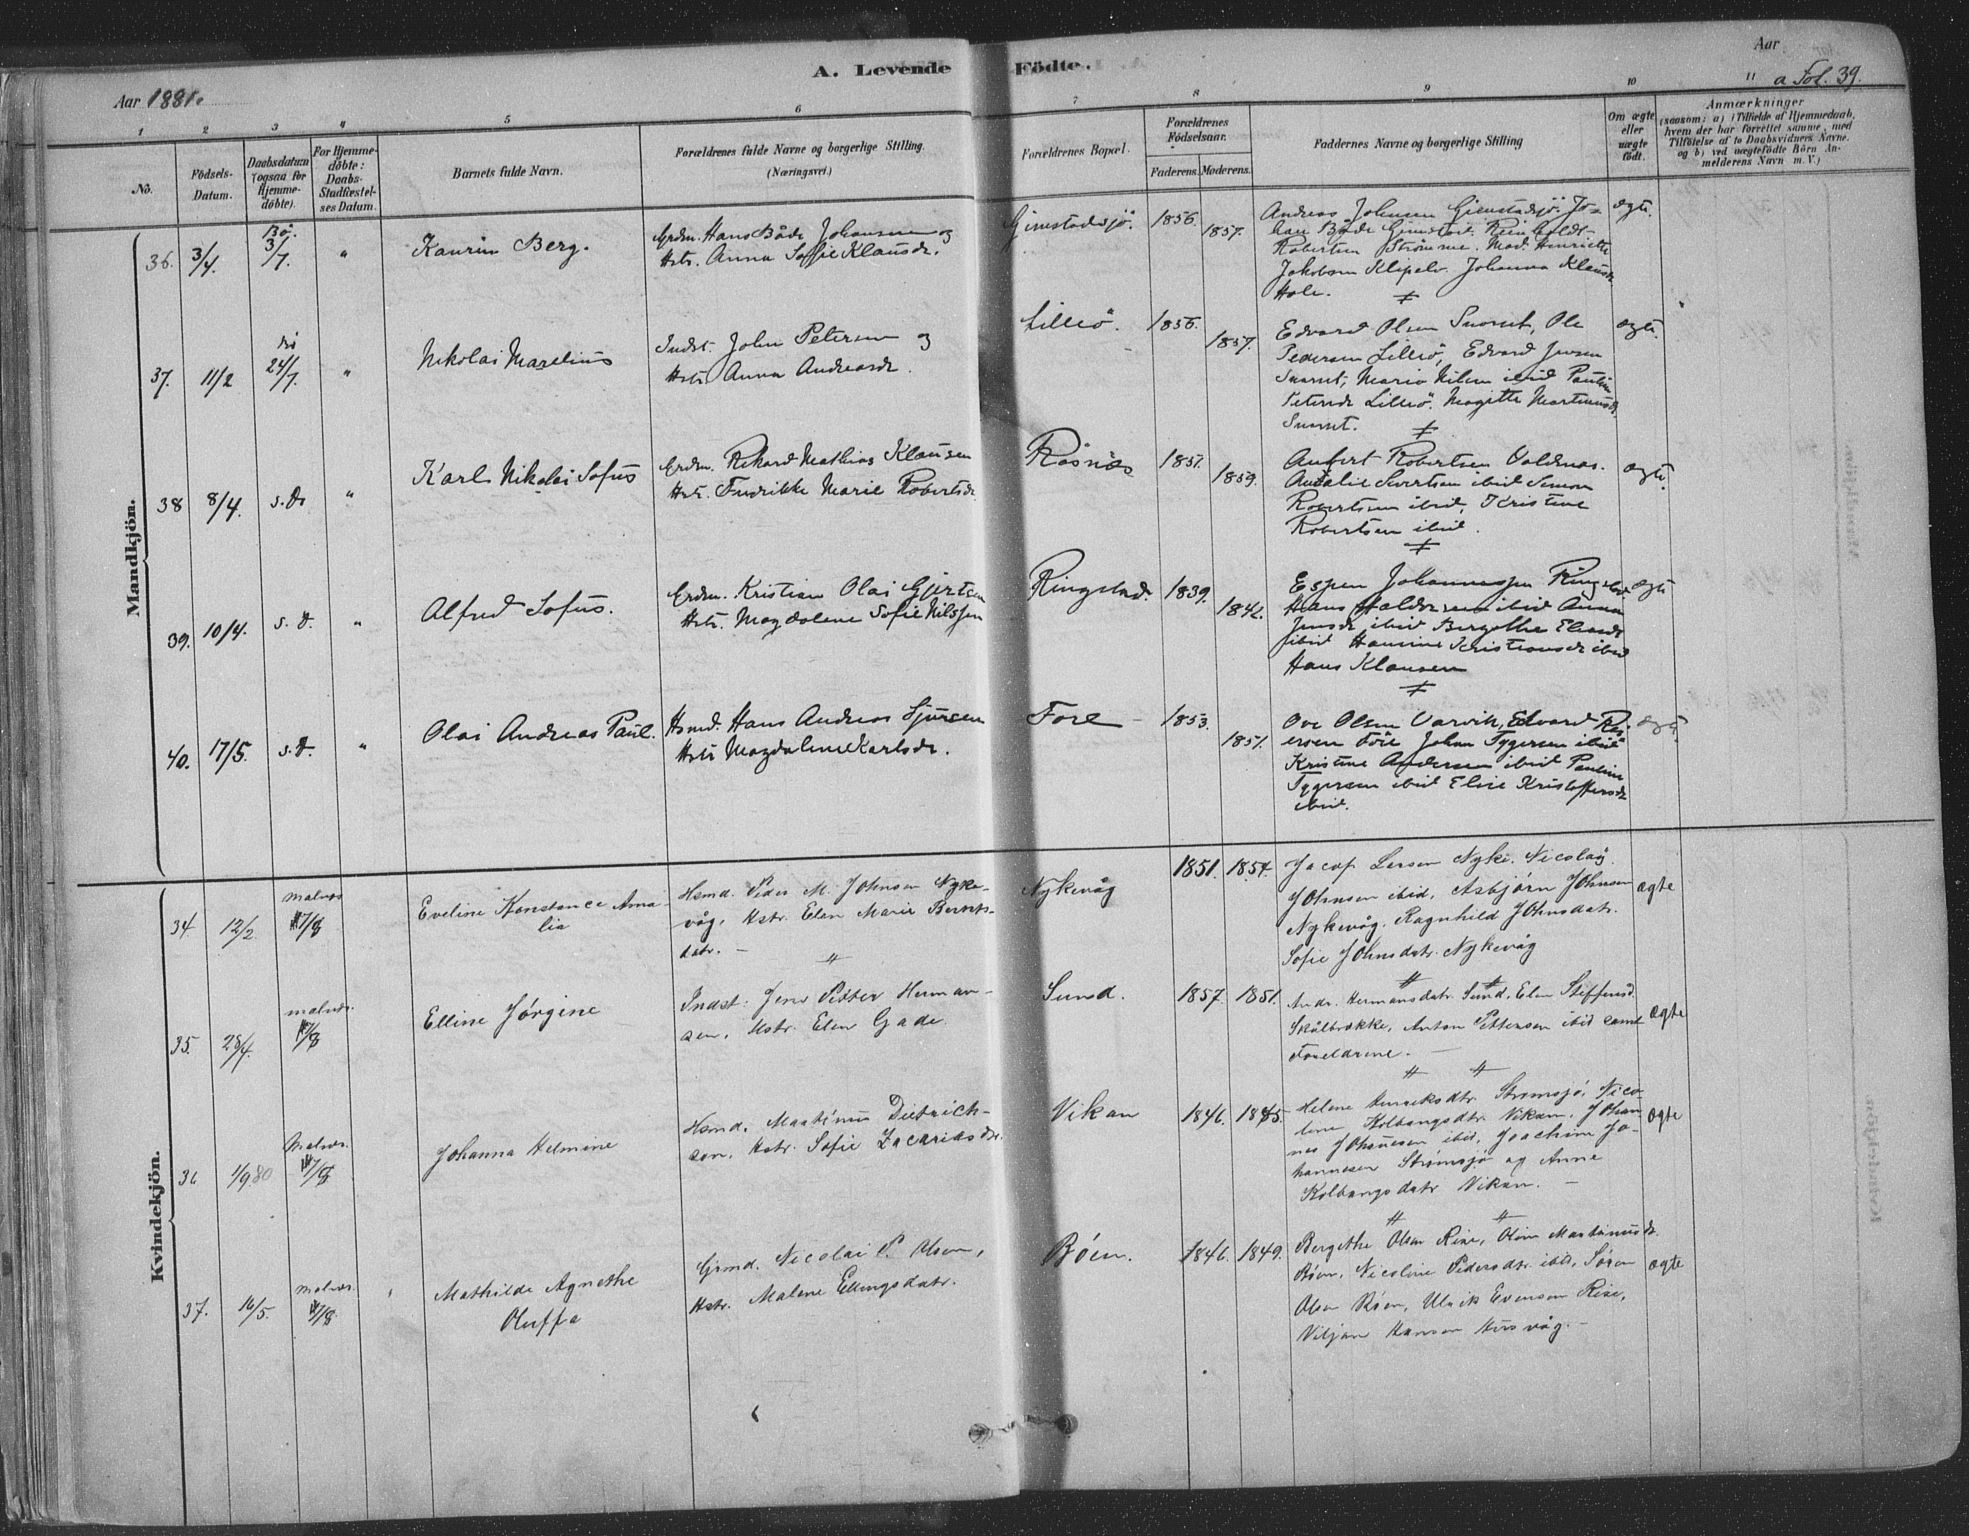 A. Levende Födte.
Aar 1881.
Aar
a Fol. 39.
1 2 3 4 5 6 7 8 9 10 11
No.
Födsels-Datum.
Daabsdatum (ogsaa for Hjemmedöbte).
For Hjemmedöbte: Daabs-Stadfæstelses Datum.
Barnets fulde Navn.
Forældrenes fulde Navne og borgerlige Stilling.
(Næringsvei.)
Forældrenes Bopæl.
Forældrenes Födselsaar.
Faderens. Moderens.
Faddernes Navne og borgerlige Stilling
Om ægte eller uægte födt.
Anmærkninger
(saasom: a) i Tilfælde af Hjemmedaab, hvem der har forrettet samme, med Tilföielse af to Daabsvidners Navne, og b) ved uægtefödte Börn Anmelderens Navn m. V.)
Mandkjön.
36. 3/4. Bö. 3/7. "
Kaurin Berg.
Grdm. Hans Både Johansen og
Hstr. Anna Sofie Klausdr.
Gimstadsjö. 1856. 1857.
Andreas Johnsen Gimstadsjö. Jo-
han Både Gimstad. Reinholdt
Robertsen Strömme. Mad. Henriette
Jakobsen Klipelv. Johanna Klausdr
Hole.
ægte.
37. 11/2 24/7. "
Nikolai Marelius
Indst. John Petersen og
Hstr. Anna Andreasdr.
Lilleö. 1856. 1857.
Edvard Olsen Snarset, Ole
Pedersen Lilleö, Edvard Jensen
Snarset, Maria Nilsen ibid Pauline
Petersdr Lilleö. Magitte Martinusdr
Snarset.
ægte.
38 8/4. s. D. "
Karl Nikolai Sofus
Grdm. Rikard Mathias Klausen
Hstr. Fredrikke Marie Robertsdr
Røsnes 1851. 1859.
Aubert Robertsen Valdnes.
Antalie Sivertsen ibid Simon
Robertsen ibid, Kristine
Robertsen ibid.
ægte.
39. 10/4. s. D. "
Alfred Sofus.
Grdm. Kristian Olai Gjertsen
Hstr. Magdalene Sofie Nilssen
Ringstad. 1839. 1842.
Espen Johannessen Ringstad
Hans Haldorsen ibid Anna
Jensdr ibid Bergethe
ibid Hansine Kristiansdr ibid
Hans Klausen
ægte
40. 17/5. s. D. "
Olai Andreas Paul.
Hsmd. Hans Andreas Sjursen
Hstr Magdalene Karlsdr.
Fore 1853. 1851.
Ove Olsen Varvik, Edvard
Fore Johan Tygersen ibid
Kristine Andersen ibid Pauline
Tygersen ibid Elise Kristoffersdr
ibid.
ægte.
Kvindekjön.
34. 12/2 Malnes 7/8
Eveline Konstance Ama-
lia
Hsmd. Peder M. Johnsen Nyke-
våg, Hstr. Elen Marie Bernts-
datr.
Nykevåg 1851. 1854.
Jacop Larsen Nyke. Nicolay
Johnsen ibid, Asbjørn Johnsen
Nykevåg. Ragnhild Johnsdatr.
Sofie Johnsdatr. Nykevåg
ægte
35. 28/4. Malnes. 7/8
Elline Jørgine
Indst. Jens Petter Herman-
sen, Hstr. Elen Gade.
Sund. 1857. 1851.
Andr. Hermansdatr. Sund, Elen Steffensd.
Skålbrække, Anton Pettersen ibid samt
Foreldrene.
ægte
36 1/9 80 Malnes. 7/8
Johanna Helmine
Hsmd. Martinus Dietrich-
sen, Hstr. Sofie Zacariasdr.
Vikan 1846. 1845.
Helene Henriksdtr. Strømsjö, Nico-
line Kolbangsdtr. Vikan, Johan-
nes Johansen ibid, Joachim Jo-
hannesen Strømsjø og Anne
Kolbangsdatr Vikan.
ægte
37. 16/5. Malnes. 7/8
Mathilde Agnethe
Oluffa
Grmd. Nicolai P. Olsen,
Hstr. Malene Ellingsdatr.
Bøen. 1846. 1849.
Bergithe Olsen Rise, Oline Martinusdr.
Bøen, Nicoline Pedersdtr. ibid, Søren
Olsen Bøen, Ulrik Evensen Rise,
Viljam Hansen Husvåg.
ægte